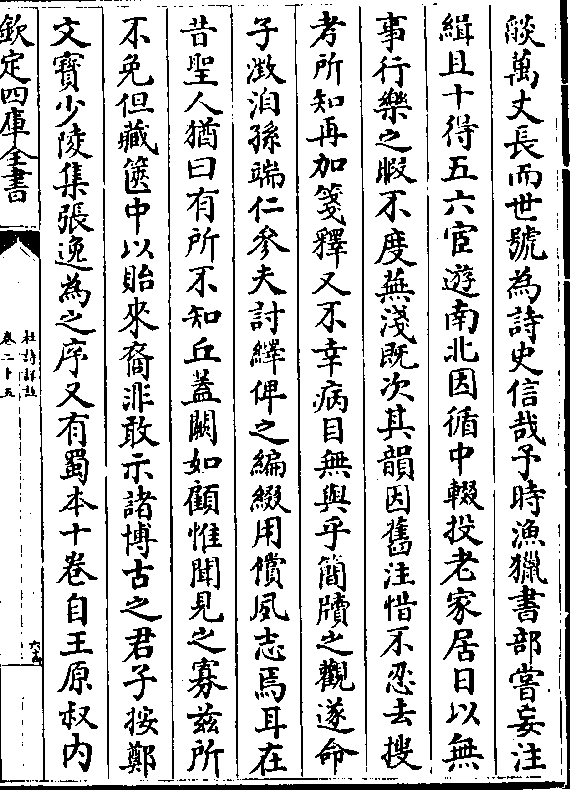 燄萬丈長而世號為詩史信哉予時漁獵書部嘗妄注
緝且十得五六宦遊南北因循中輟投老家居日以無
事行樂之暇不度蕪淺既次其韻因舊注惜不忍去搜
考所知再加箋釋又不幸病目無與乎簡牘之觀遂命
子澂洎孫端仁參夫討繹俾之編綴用償夙志焉耳在
昔聖人猶曰有所不知丘蓋闕如顧惟聞見之寡茲所
不免但藏篋中以貽來裔非敢示諸博古之君子按鄭
文寶少陵集張逸為之序又有蜀本十卷自王原叔内
欽定四庫全書
杜詩詳註
卷二十五